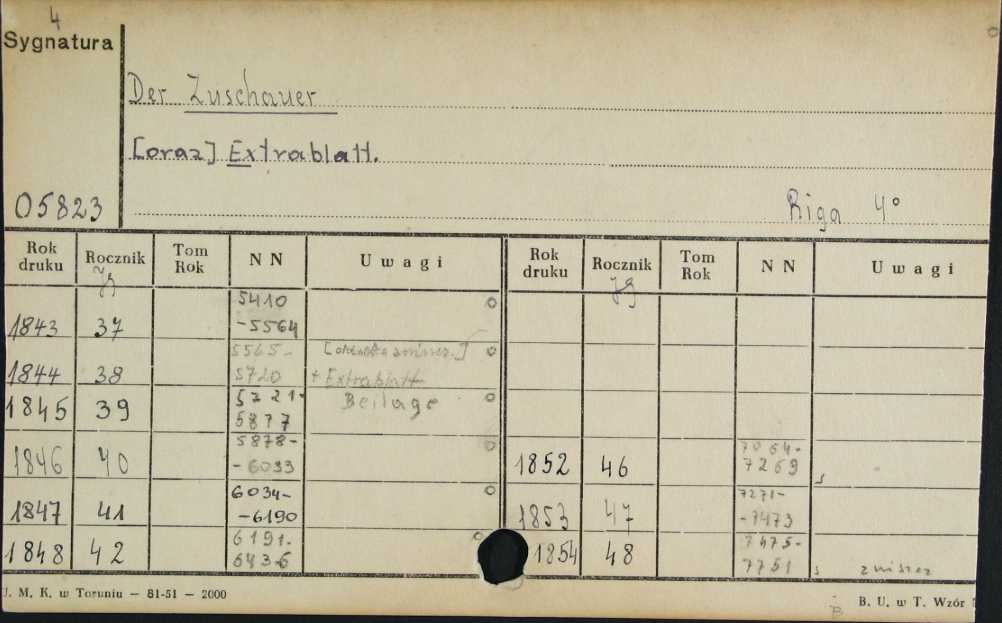 4
Sygnatura
Der Zuschauer
[oraz] Extrablatt.
05823
Riga 4°
Rok druku Rocznik Tom Rok NN Uwagi Rok druku Rocznik Tom Rok NN Uwagi
Jg Jg
1843 37 5410 -5564
1844 38 5565- 5720 + Extrablatt
1845 39 5721- 5877 Beilage
1846 40 5878- -6033 1852 46 7064- 7269 s
1847 41 6034- -6190 1853 47 7271- -7473
1848 42 6191- 6436 1854 48 7475- 7751 s zniszcz
J. M. K. w Toruniu — 81-51 — 2000
B. U. w T. Wzór
B